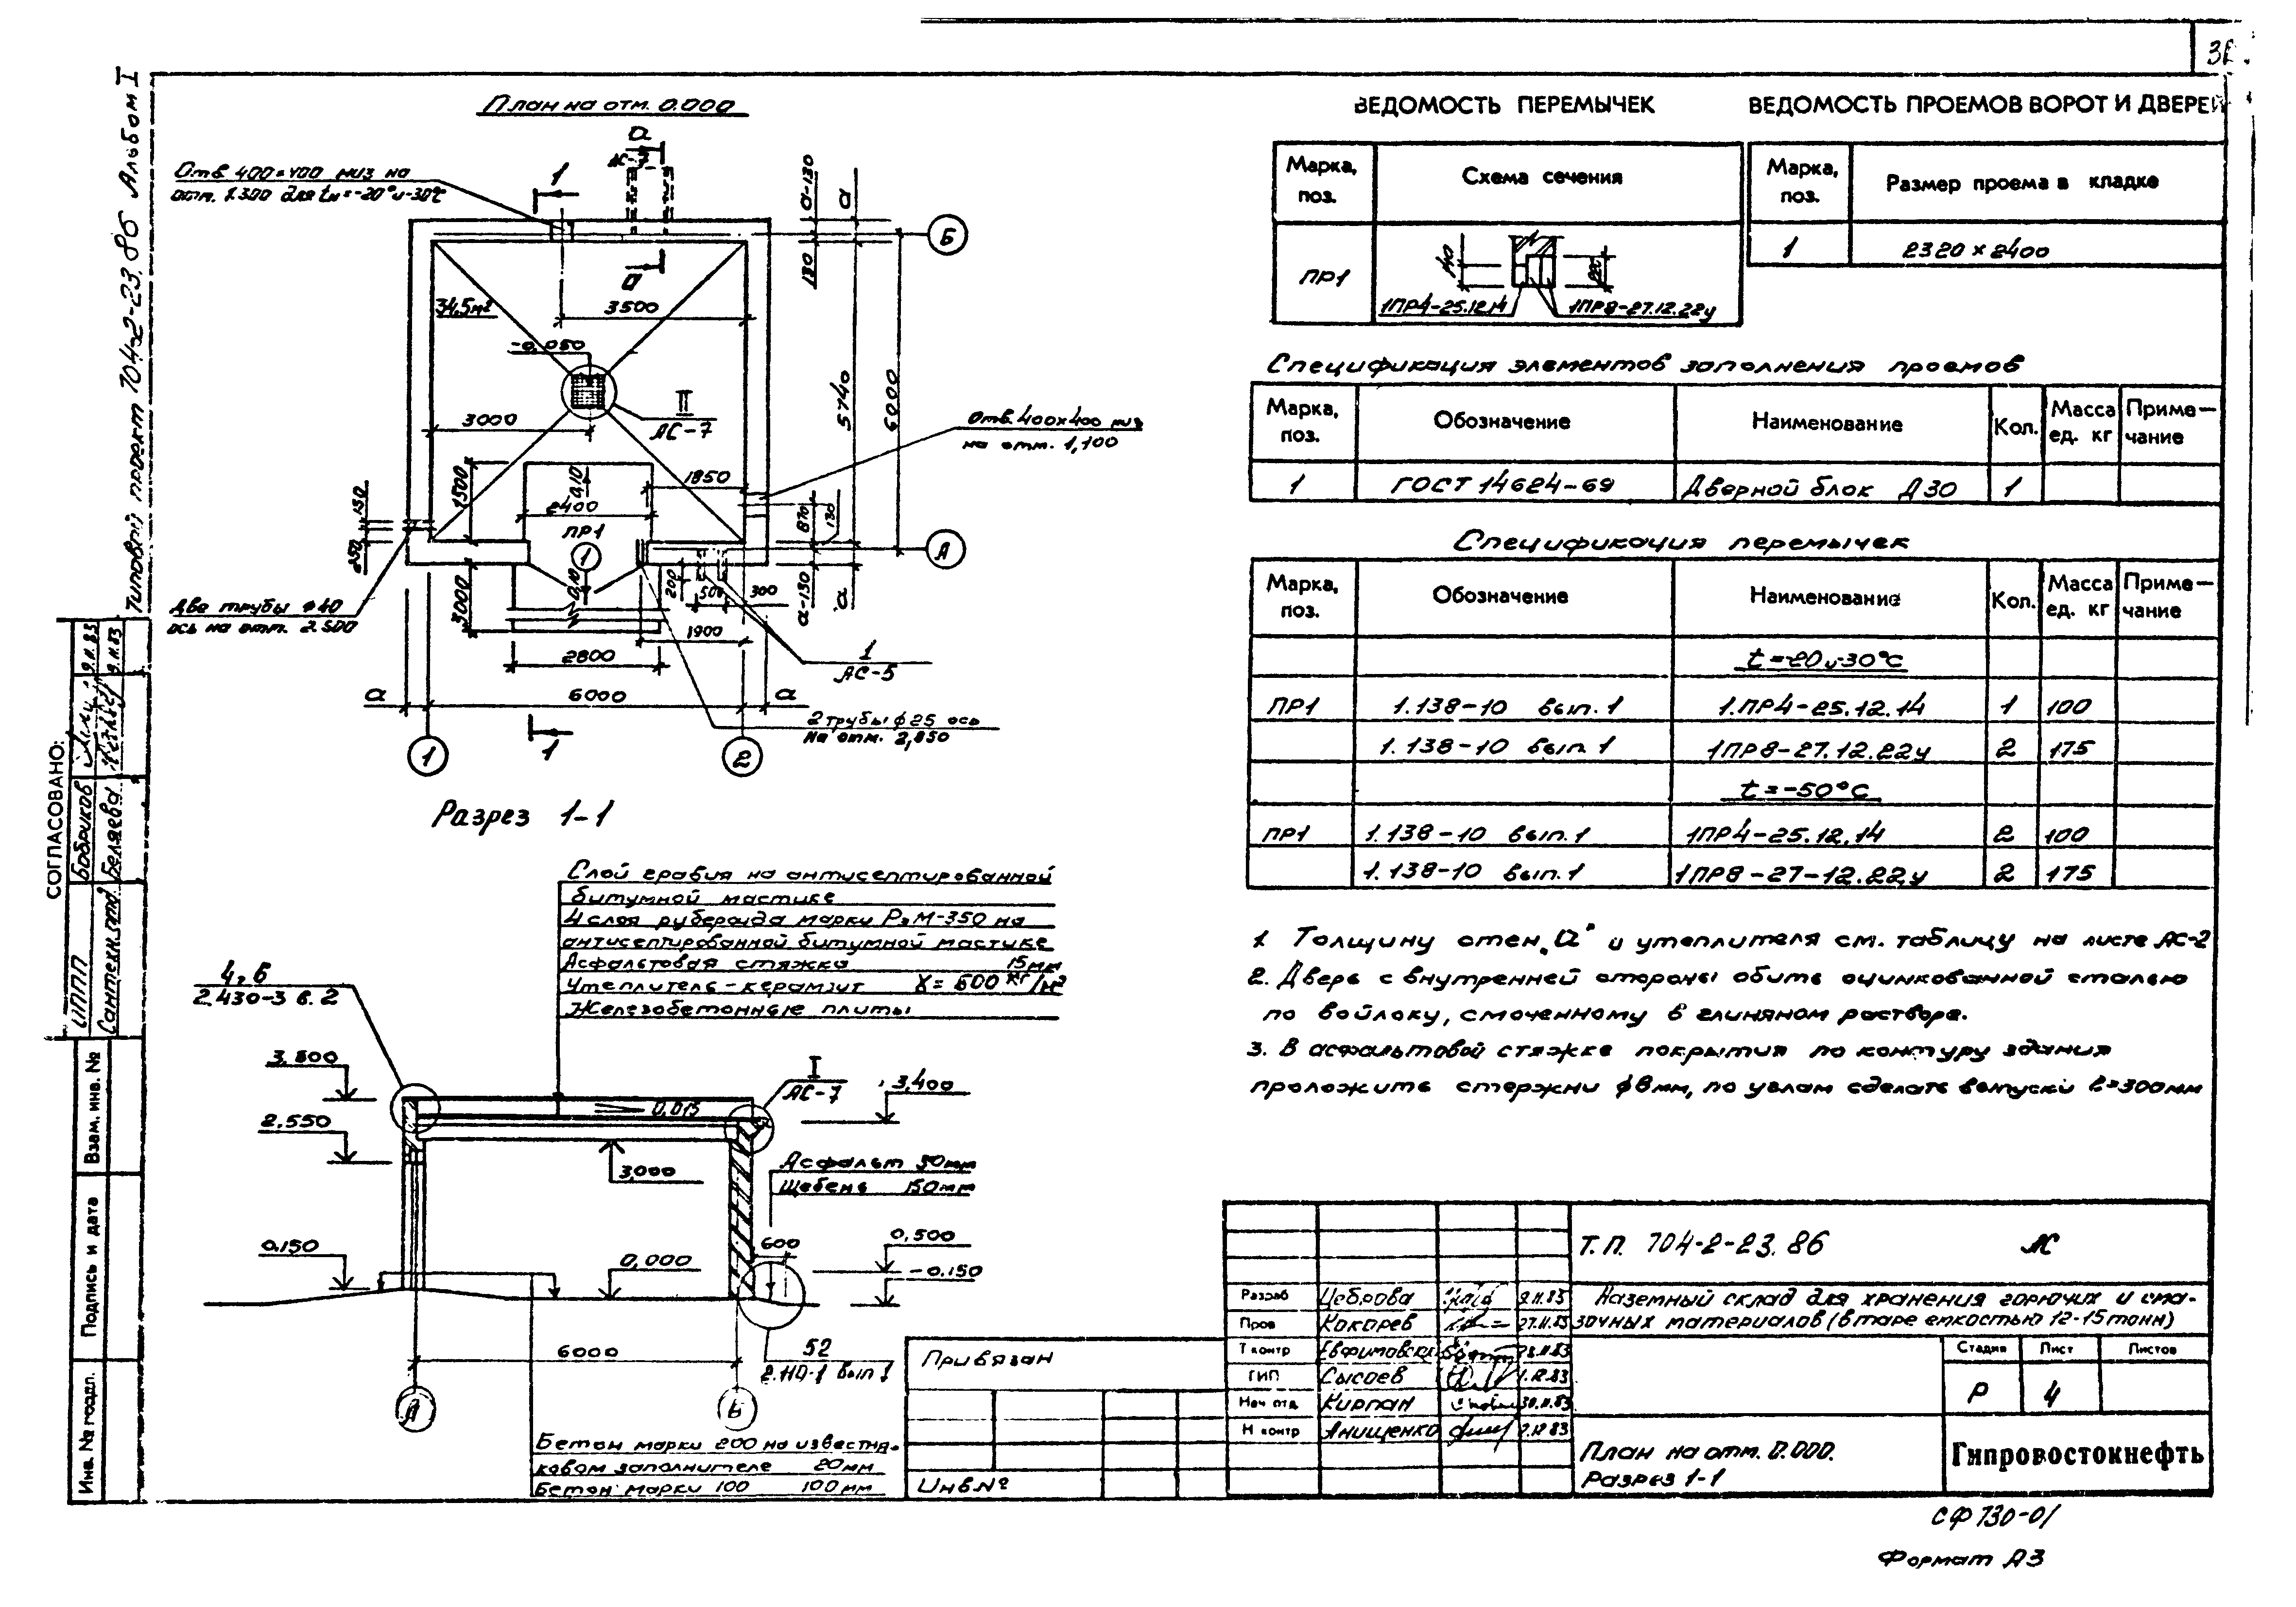 Типовой проект 704-2-23.86 Альбом I
План на отм. 0.000
Отв 400×400 низ на
отм. 1.300 для tн=-20°и-30°С
1
а
а
34,5м²
3500
-0,050
II
АС-7
3000
1500
0,10
2400
ПР1
1
1850
а-130
а
130
5740
6000
Б
А
Отв. 400х400 низ
на отм. 1,100
870
130
а-130
а
150
250
Две трубы ф40
ось на отм. 2.500
3000
0,10
200
500
300
1900
2800
1
АС-5
а
6000
а
2 трубы ф25 ось
на отм. 2,850
1
1
2
Разрез 1-1
Слой гравия на антисептированной
битумной мастике
4 слоя рубероида марки РэМ-350 на
антисептированной битумной мастике
Асфальтовая стяжка 15мм
Утеплитель-керамзит γ=600 кг/м³
Железобетонные плиты
4, 6
2.430-3 в. 2
3,800
2.550
0.150
0,015
I
АС-7
3,400
3,000
Асфальт 30мм
Щебень 150мм
600
0,500
-0.150
0,000
6000
52
2.110-1 вып 1
А
Б
Бетон марки 200 на известня-
ковом заполнителе 20мм
Бетон марки 100 100мм
ВЕДОМОСТЬ ПЕРЕМЫЧЕК
Марка, поз.
Схема сечения
ПР1
140
220
1ПР4-25.12.14
1ПР8-27.12.22у
ВЕДОМОСТЬ ПРОЕМОВ ВОРОТ И ДВЕРЕЙ
Марка, поз.
Размер проема в кладке
1 2320×2400
Спецификация элементов заполнения проемов
Марка, поз. Обозначение Наименование Кол. Масса ед. кг Приме-чание
1 ГОСТ 14624-69 Дверной блок Д30 1
Спецификация перемычек
Марка, поз. Обозначение Наименование Кол. Масса ед. кг Приме-чание
t=-20 и-30°С
ПР1 1.138-10 вып. 1 1.ПР4-25.12.14 1 100
1.138-10 вып. 1 1ПР8-27.12.22у 2 175
t=-50°С
ПР1 1.138-10 вып. 1 1ПР4-25.12.14 2 100
1.138-10 вып. 1 1ПР8-27-12.22у 2 175
1 Толщину стен „а" и утеплителя см. таблицу на листе АС-2
2. Дверь с внутренней стороны обить оцинкованной сталью
по войлоку, смоченному в глиняном растворе.
3. В асфальтовой стяжке покрытия по контуру здания
проложить стержни ф8мм, по углам сделать выпуски l=300мм
СОГЛАСОВАНО:
Бобриков 9.11.83
Сантехн. Беляева 9.11.83
Взам. инв. №
Подпись и дата
Инв. № подл.
Привязан
Инв №
Т.П. 704-2-23.86 АС
Разраб Цеброва 9.11.83
Пров Кокорев 27.11.83
Т контр
ГИП Сысоев 1.12.83
Нач отд Кирпан 30.11.83
Н контр Анищенко 2.12.83
Наземный склад для хранения горючих и сма-
зочных материалов (в таре емкостью 12-15 тонн)
Стадия Лист Листов
Р 4
План на отм. 0.000.
Разрез 1-1
Гипровостокнефть
СФ 730-01
Формат А3